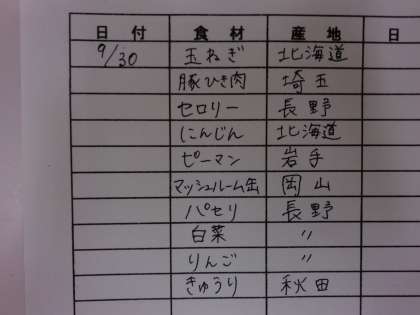 日付 食材 産地 日
9/30 玉ねぎ 北海道
豚ひき肉 埼玉
セロリー 長野
にんじん 北海道
ピーマン 岩手
マッシュルーム缶 岡山
パセリ 長野
白菜 〃
りんご 〃
きゅうり 秋田